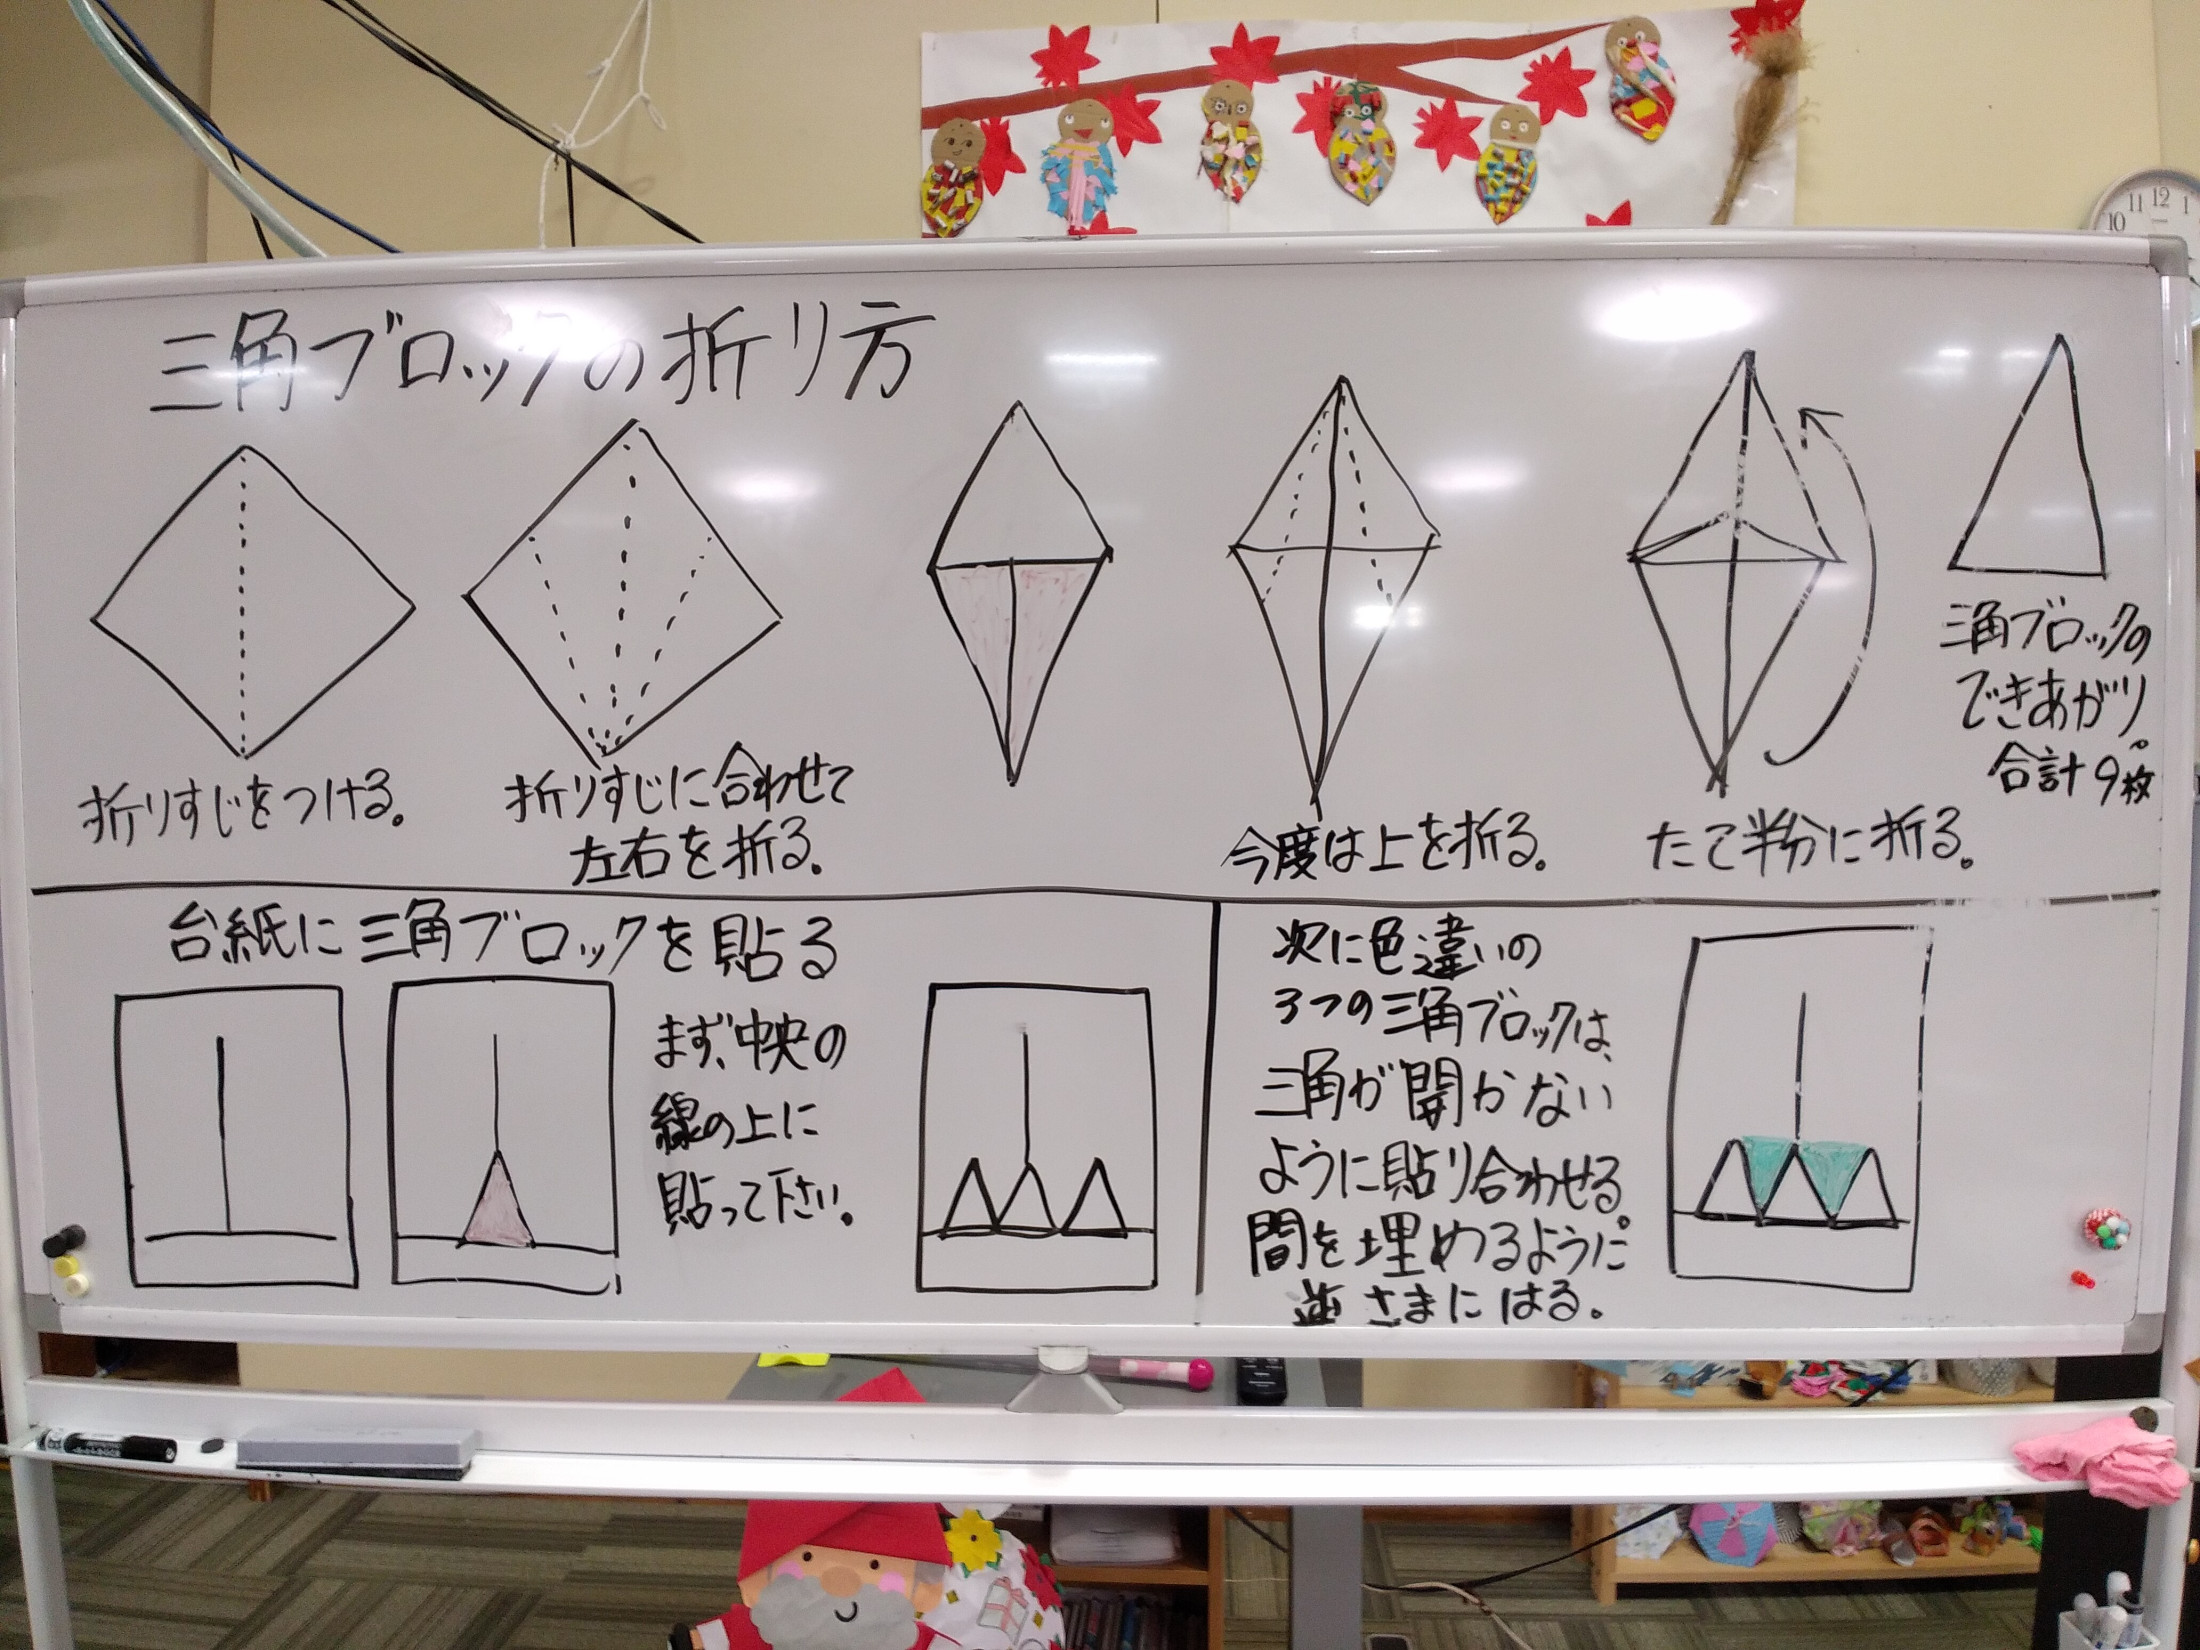 三角ブロックの折り方
折りすじをつける。
折りすじに合わせて
左右を折る。
今度は上を折る。
たて半分に折る。
三角ブロックの
できあがり。
合計9枚
台紙に三角ブロックを貼る
まず、中央の
線の上に
貼って下さい。
次に色違いの
3つの三角ブロックは、
三角が開かない
ように貼り合わせる。
間を埋めるように
逆さまにはる。
10 11 12 1